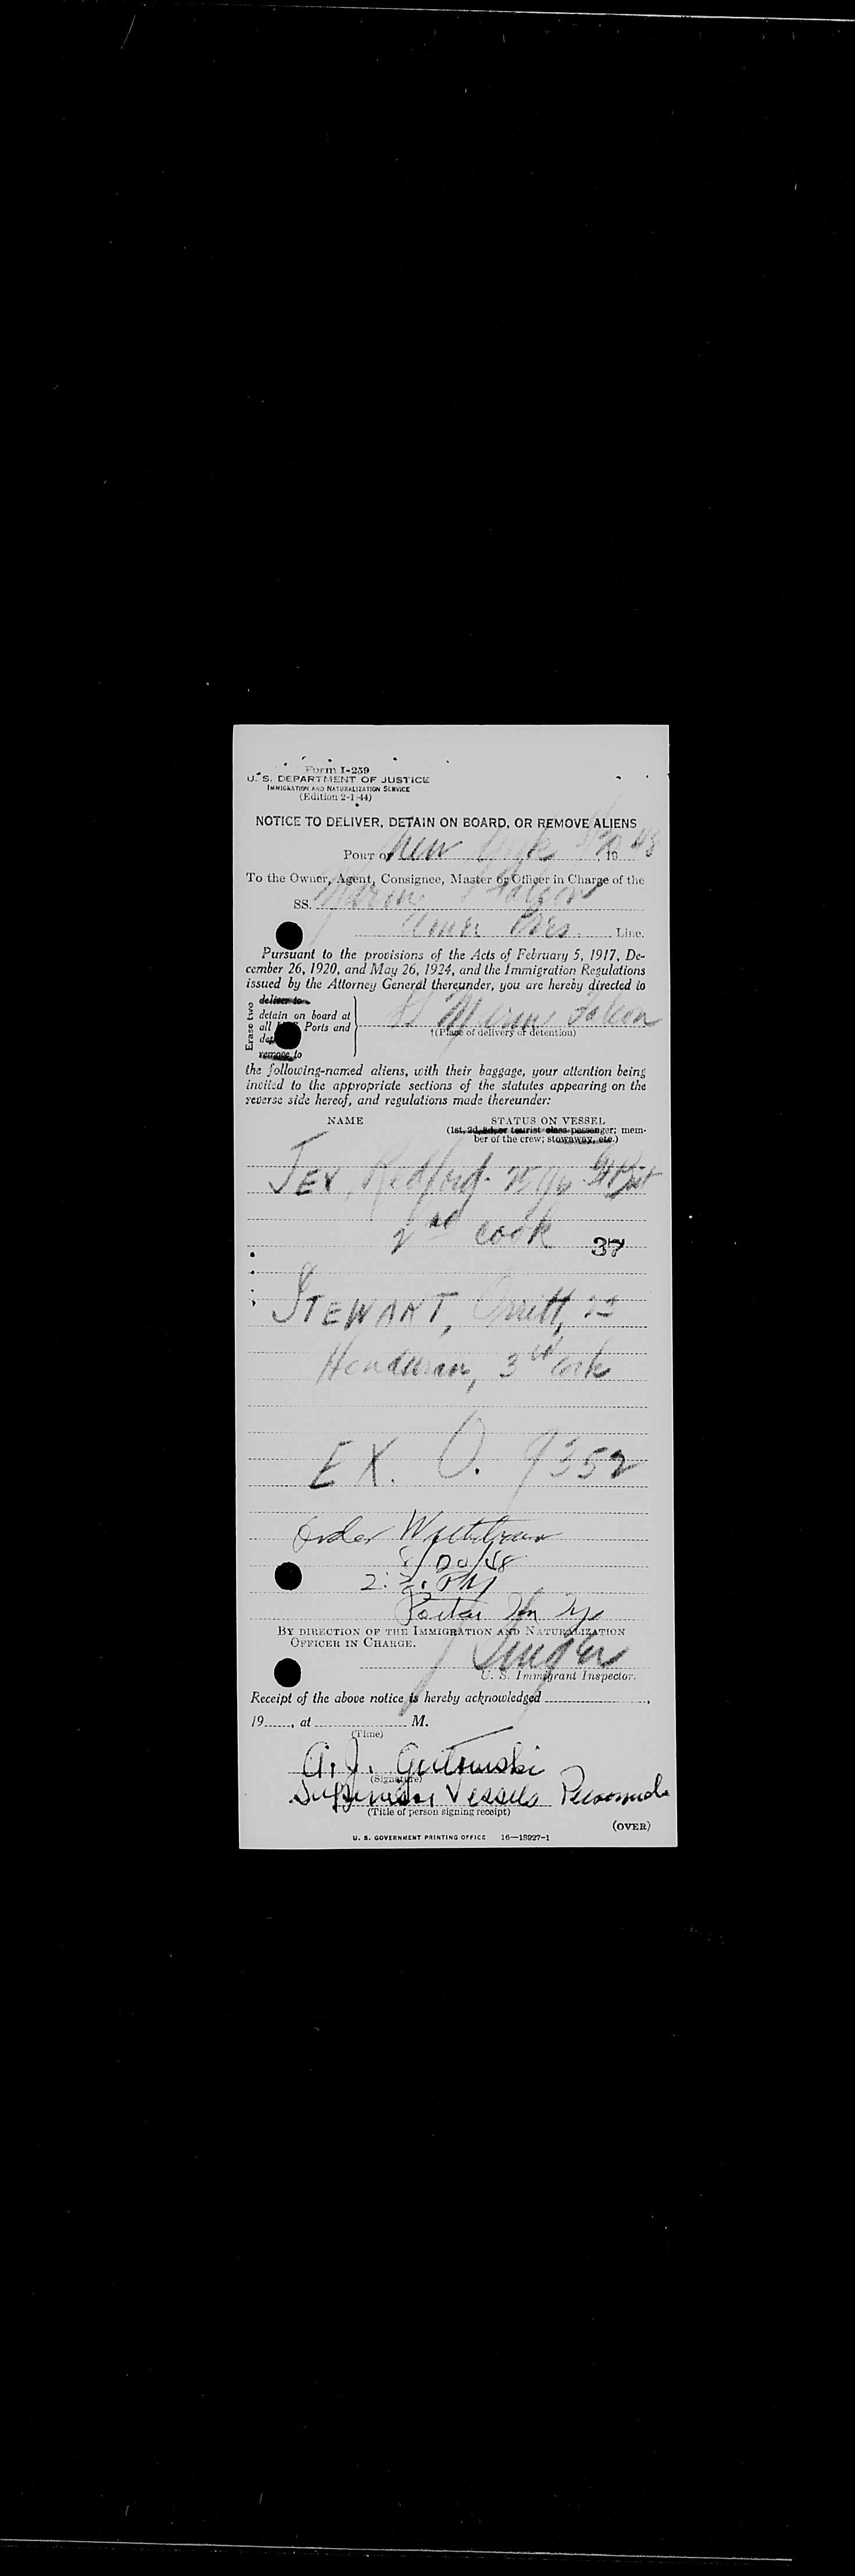 Form I-259
U. S. DEPARTMENT OF JUSTICE
IMMIGRATION AND NATURALIZATION SERVICE
(Edition 2-1-44)
NOTICE TO DELIVER, DETAIN ON BOARD, OR REMOVE ALIENS
PORT OF New York 8/20, 1948
To the Owner, Agent, Consignee, Master or Officer in Charge of the
SS. Marine Falcon
Line.
Pursuant to the provisions of the Acts of February 5, 1917, De-
cember 26, 1920, and May 26, 1924, and the Immigration Regulations
issued by the Attorney General thereunder, you are hereby directed to
Erase two
deliver to
detain on board at
all Ports and
remove to
SS Marine Falcon
†(Place of delivery or detention)
the following-named aliens, with their baggage, your attention being
invited to the appropriate sections of the statutes appearing on the
reverse side hereof, and regulations made thereunder:
NAME STATUS ON VESSEL
(1st, 2d, 3d, or tourist class passenger; mem-
ber of the crew; stowaway, etc.)
JEX, Redford
2nd cook 37
STEWART, Orritt,
Honduran, 3rd cook
EX. O. 9352
Order Withdrawn
8/20/48
2: PM
BY DIRECTION OF THE IMMIGRATION AND NATURALIZATION
OFFICER IN CHARGE.
U. S. Immigrant Inspector.
Receipt of the above notice is hereby acknowledged ,
19 , at M.
(Time)
A. J. Gutowski
(Signature)
Supervisor Vessels Personnel
(Title of person signing receipt)
(OVER)
U. S. GOVERNMENT PRINTING OFFICE 16—18927-1